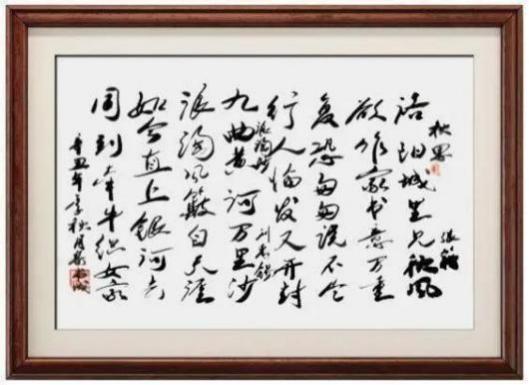 秋思
张籍
洛阳城里见秋风
欲作家书意万重
复恐匆匆说不尽
行人临发又开封
浪淘沙
刘禹锡
九曲黄河万里沙
浪淘风簸自天涯
如今直上银河去
同到牵牛织女家
辛丑年季秋